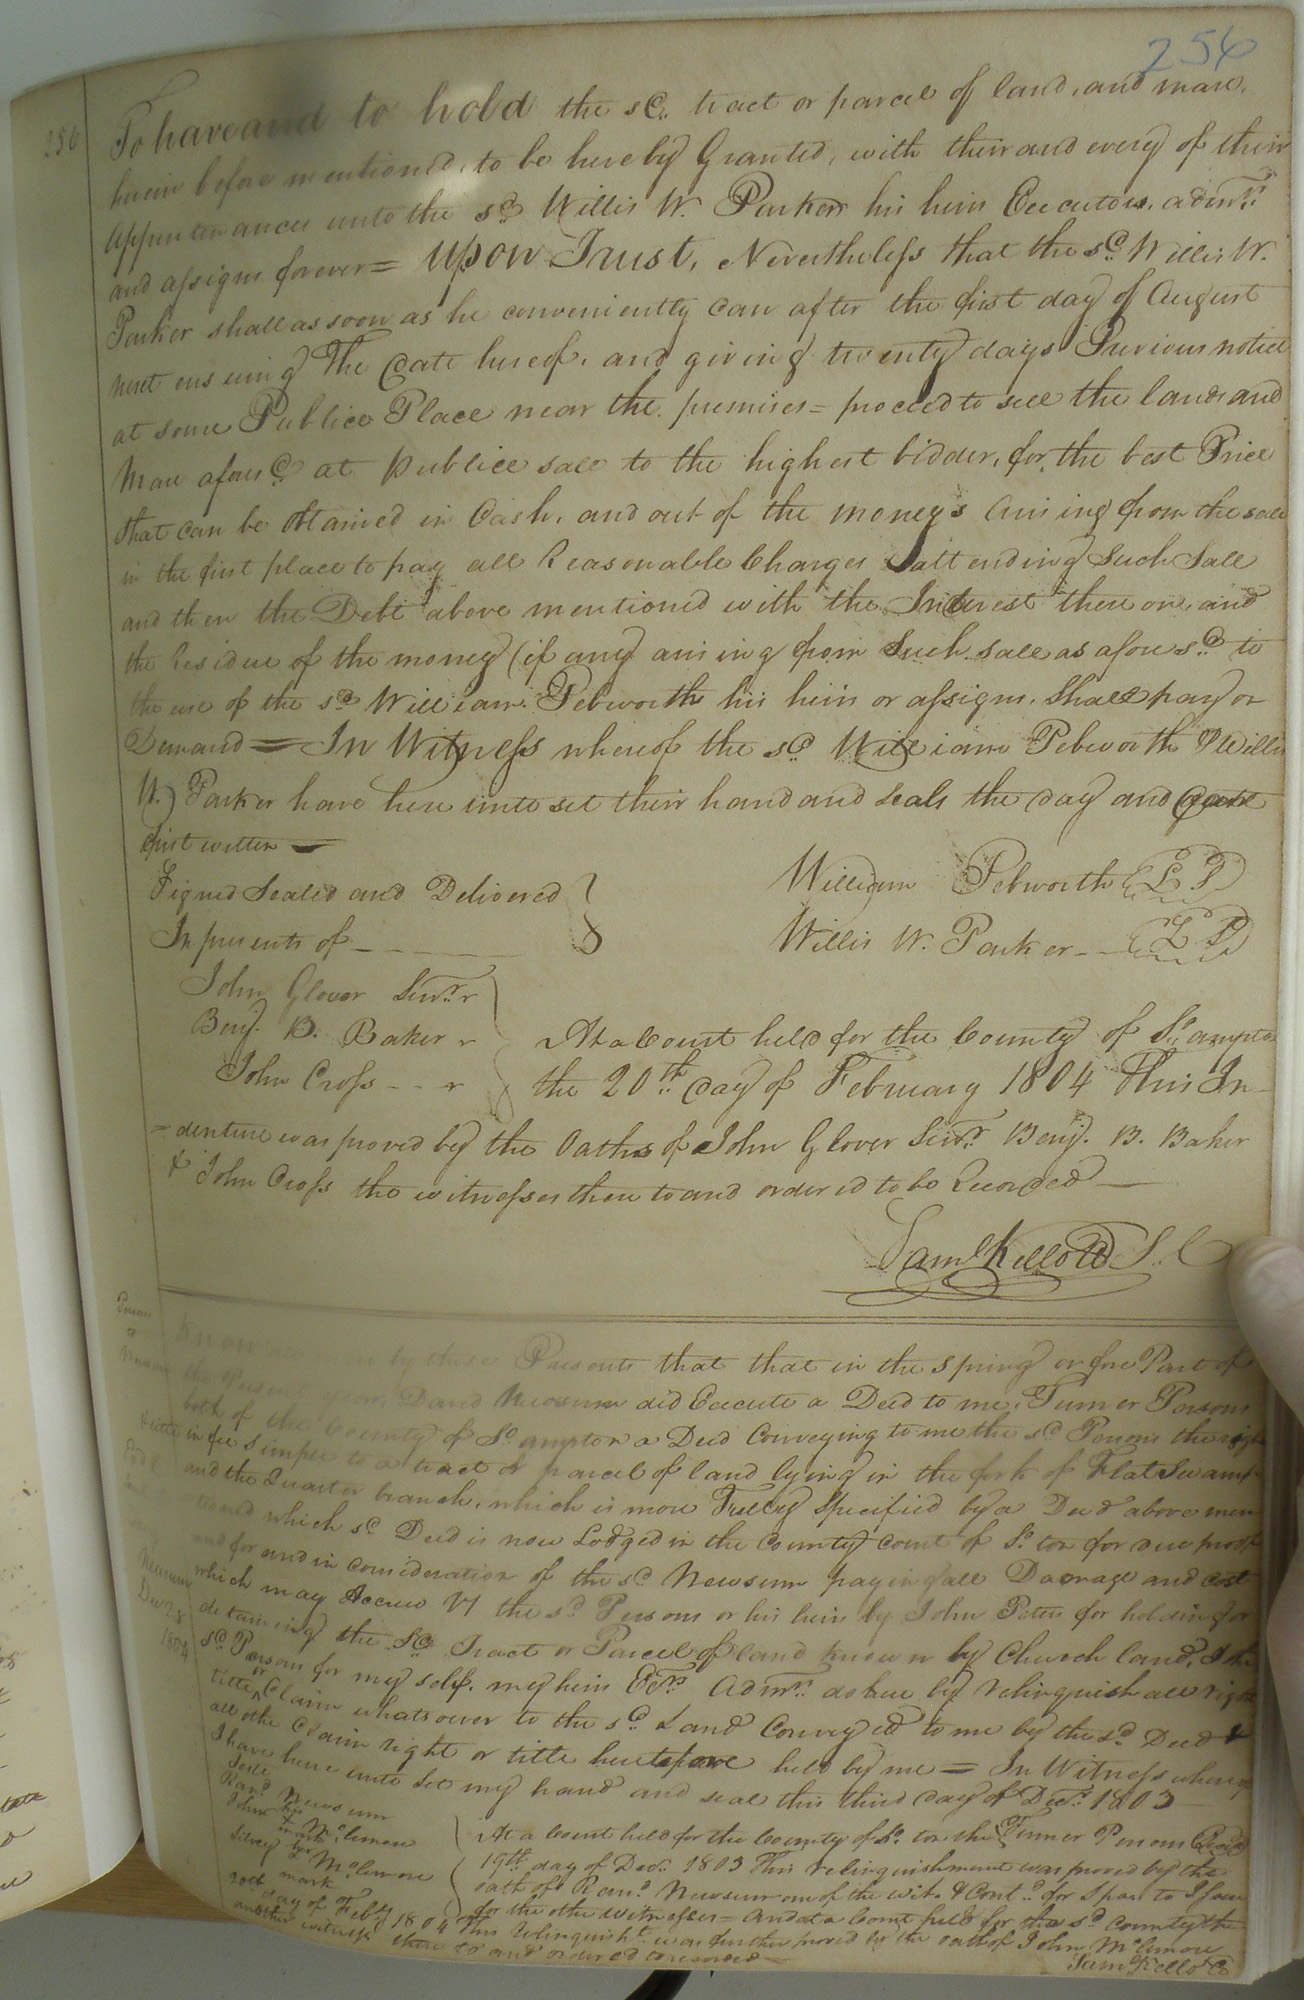 256
256
To have and to hold the sd. tract or parcel of land, and mare,
herein before mentioned, to be hereby Granted, with their and every of their
Appurtenances unto the sd Willis W. Parker his heirs Executors, admrs.
and assigns forever = Upon Trust, Nevertheless that the sd. Willis W.
Parker shall as soon as he conveniently can after the first day of August
next ensuing The date hereof, and giving twenty days Previous notice
at some Publice Place near the premises = proceed to sell the land and
Mare afousd at publice sale to the highest bidder, for the best Price
that can be obtained in Cash, and out of the moneys arising from the sale
in the first place to pay all Reasonable Charges attending Such Sale
and then the Debt above mentioned with the Interest there on, and
the Residue of the money (if any arising from Such sale as afoussd to
the use of the sd William Pebworth his heirs or assigns, Shall pay on
Demand = In Witness whereof the sd William Pebworth & Willis
W. Parker have here unto set their hand and seals the day and date
first written
Signed Sealed and Delivered
In presents of
William Pebworth L S
Willis W. Parker L S
John Glover Senr. r
Benj. B. Baker r
John Cross r
At a Court held for the County of So. ampton
the 20th day of February 1804 This In-
=denture was proved by the Oaths of John Glover Senr. Benj. B. Baker
& John Cross the witnesses there to and ordered to be Recorded
Saml Kello D S. C
Persons
to
Newsum
Know men by these Presents that that in the Spring or fore Part of
the present year, David Newsum did Execute a Deed to me, Turner Persons
both of the County of So. ampton a Deed Conveying to me the sd Persons the right
& title in fee Simple to a tract or parcel of land lying in the fork of Flat Swamp
and the Quarter branch, which is more Fulley Specified by a Deed above men
tioned which sd Deed is now Lodged in the County Court of So. ton for due proof
and for and in consideration of the sd Newsum paying all Damage and Cost
which may Accrue VS the sd Persons or his heirs by John Peters for holding or
detaining the Sd Tract or Parcel of land known by Church land, I the
sd Persons for my self, my heirs Exrs. Admrs. do here by relinquish all right
title or Claim whatsoever to the sd. Land Conveyed to me by the sd Deed &
all othe Claim right or title heretofore held by me = In Witness whereof
I have here unto Set my hand and seal this third day of Decr. 1803
Newsum
Decr 28
1804
Teste
Rand Newsum
his
John McLemore
mark
Silvey her McLemore
mark
At a Court held for the County of So. ton the
Turner Persons Seal
19th day of Decr. 1803 This relinquishment was proved by the
oath of Rand. Newsum one of the wit. & Contd. for
for the other Witnesses = And at a Court held for the sd County the
20th day of Feby 1804 This Relinquisht. was further proved by the oath of John McLemore
another witness there to and ordered to record
Sam Kello C